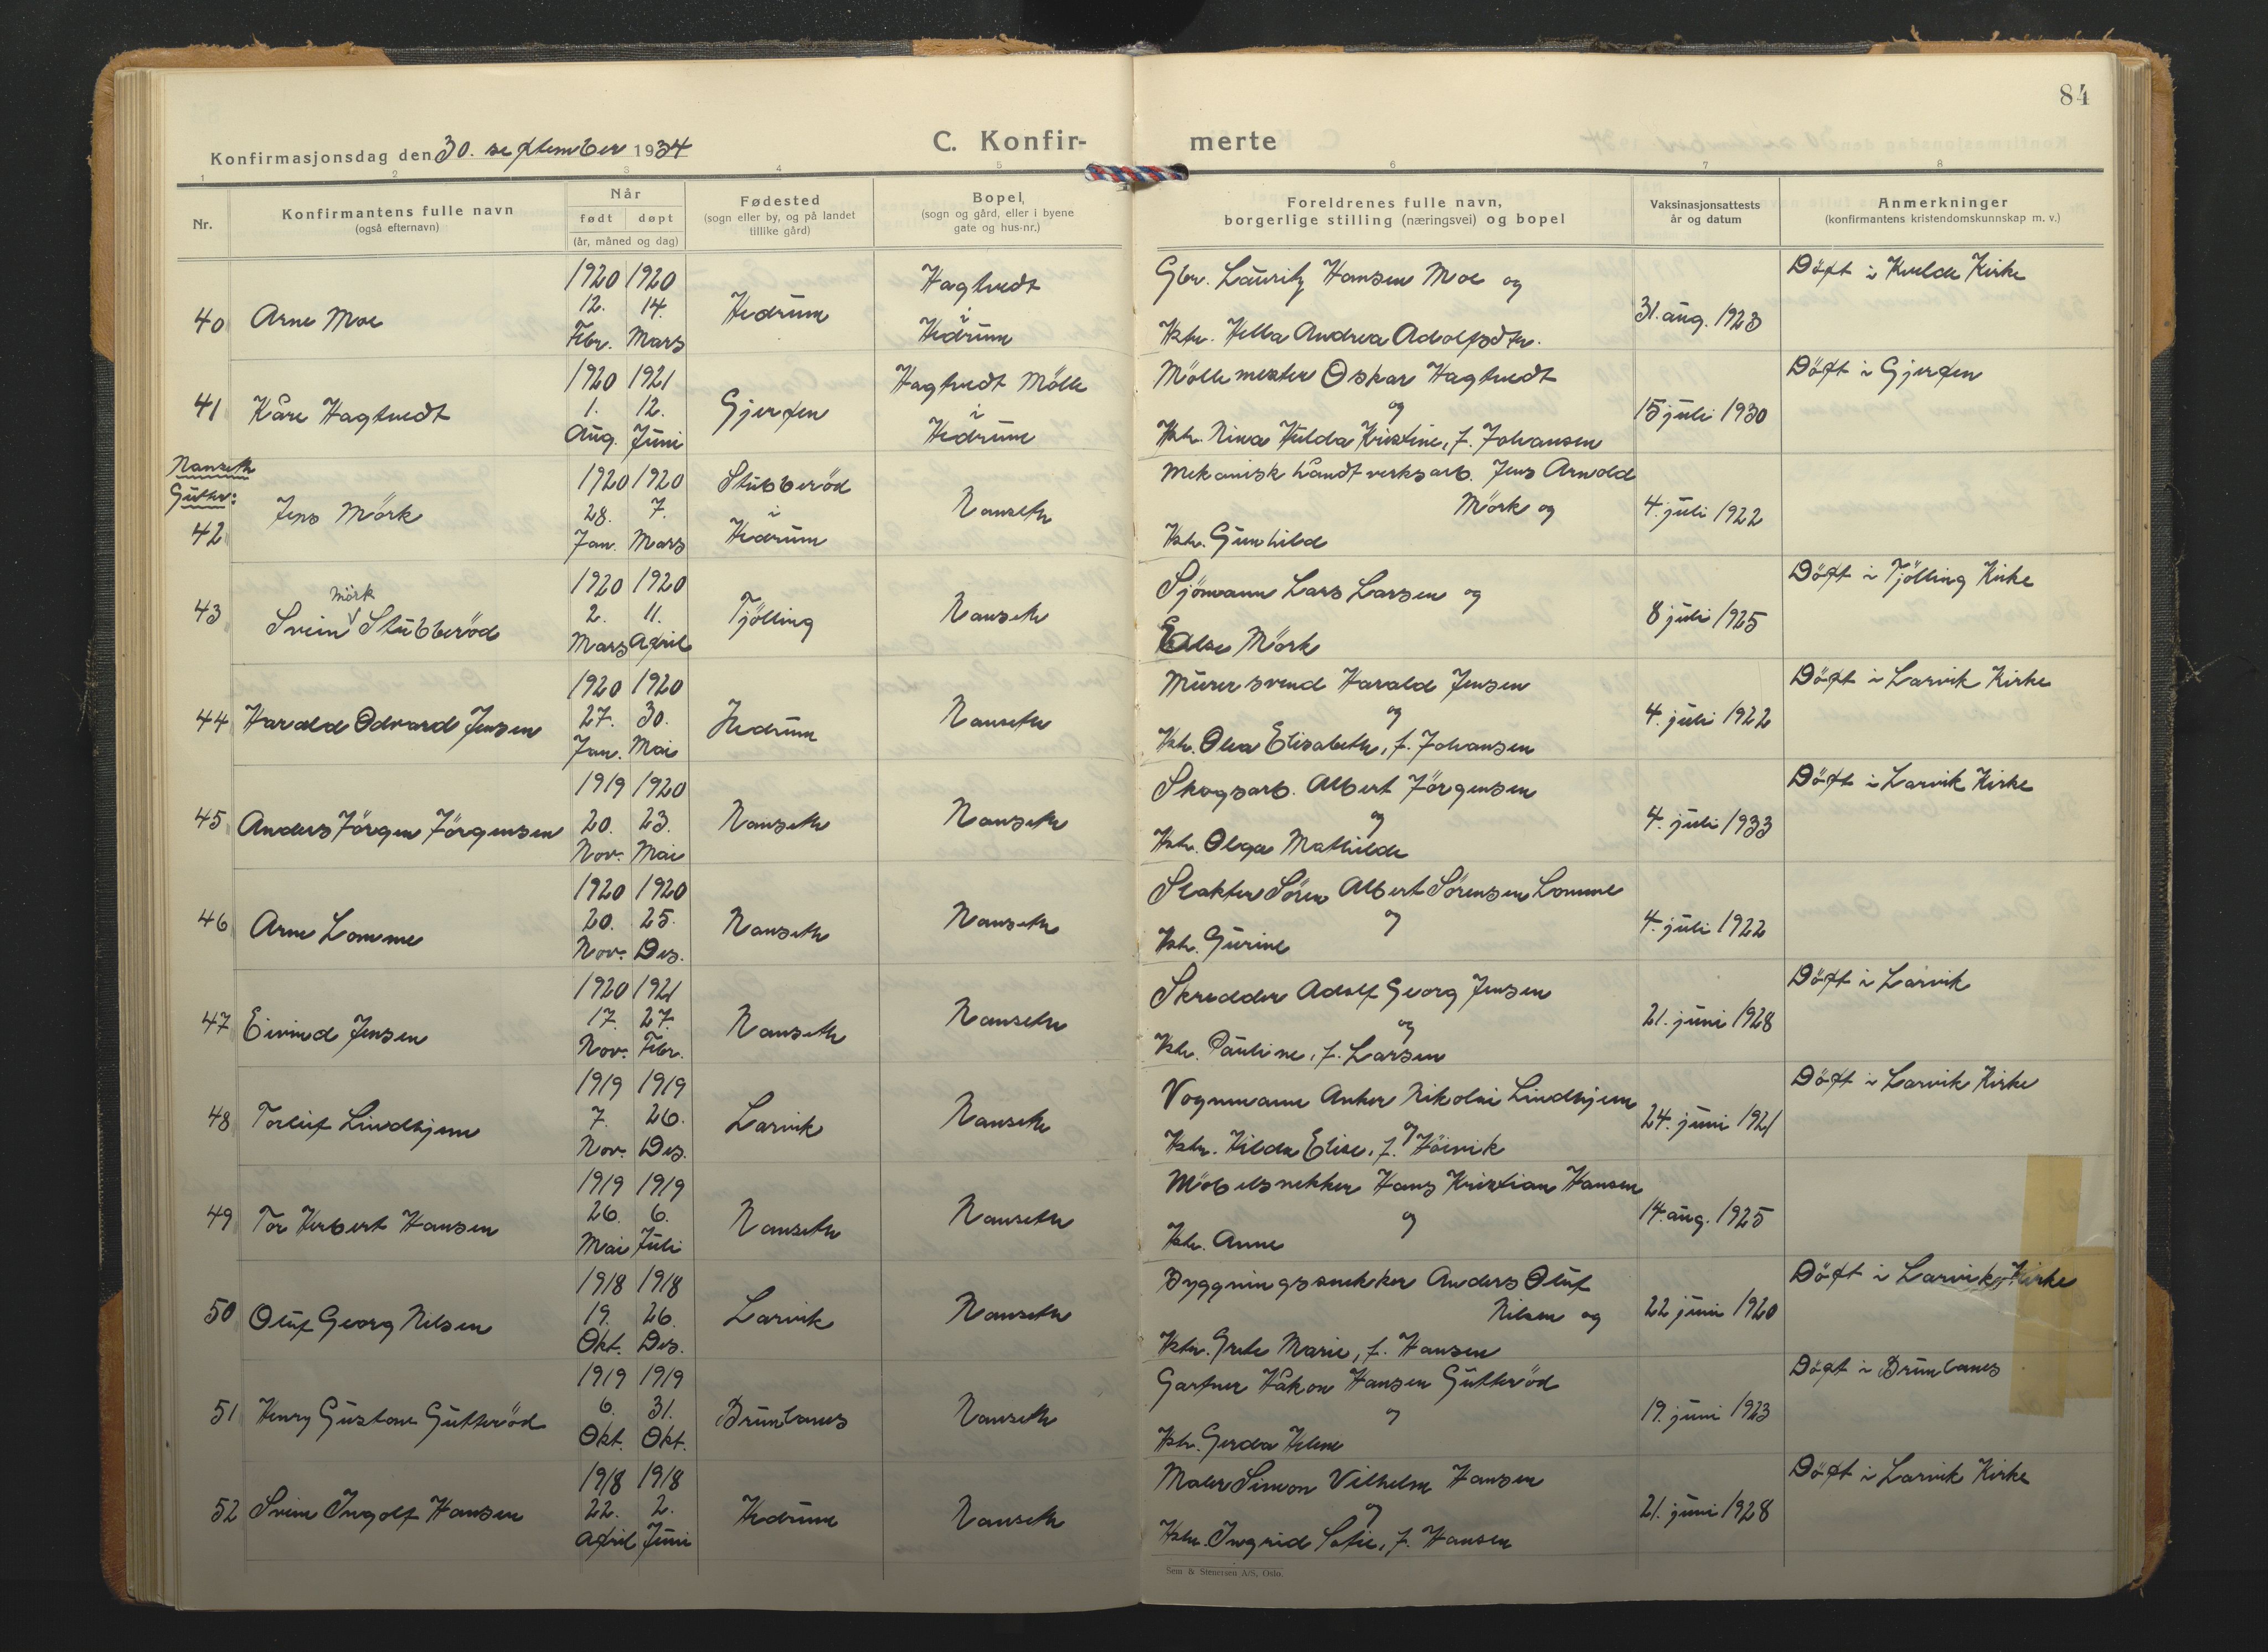 84
Konfirmasjonsdag den 30. september 1934
C. Konfir- merte
1 2 3 4 5 6 7 8
Nr.
Konfirmantens fulle navn
(også efternavn)
Når
født døpt
(år, måned og dag)
Fødested
(sogn eller by, og på landet
tillike gård)
Bopel,
(sogn og gård, eller i byene
gate og hus-nr.)
Foreldrenes fulle navn,
borgerlige stilling (næringsvei) og bopel
Vaksinasjonsattests
år og datum
Anmerkninger
(konfirmantens kristendomskunnskap m. v.)
40 Arne Moe
1920 1920
12. 14.
Febr. Mars
Hedrum
Hagtvedt
i
Hedrum
Gbr. Lauritz Hansen Moe og
Hstr. Hella Andrea Adolfsdtr.
31. aug. 1923
Döpt i Kvelde Kirke
41 Kåre Hagtvedt
1920 1921
1. 12.
Aug. Juni
Gjerpen
Hagtvedt Mölle
i
Hedrum
Möllemester Oskar Hagtvedt
og
Hstr. Nina Hulda Kristine, f. Johansen
15 juli 1930
Döpt i Gjerpen
Nanseth
Gutter:
42 Jens Mörk
1920 1920
28. 7.
Jan. Mars
Stubberöd
i
Hedrum
Nanseth
Mekanisk håndtverksarb. Jens Arnold
Mörk og
Hstr. Gunhild
4. juli 1922
43 Svein Mörk Stubberöd
1920 1920
2. 11.
Mars April
Tjölling
Nanseth
Sjömann Lars Larsen og
Else Mörk
8 juli 1925
Döpt i Tjölling Kirke
44 Harald Odvard Jensen
1920 1920
27. 30.
Jan. Mai
Hedrum
Nanseth
Murersvend Harald Jensen
og
Hstr. Olva Elisabeth, f. Johansen
4. juli 1922
Döpt i Larvik Kirke
45 Anders Jörgen Jörgensen
1919 1920
20. 23.
Nov. Mai
Nanseth
Nanseth
Skogsarb. Albert Jörgensen
og
Hstr. Olga Mathilde
4. juli 1933
Döpt i Larvik Kirke
46 Arne Lomme
1920 1920
20. 25.
Nov. Des.
Nanseth
Nanseth
Slakter Sören Albert Sörensen Lomme
og
Hstr. Gurine
4. juli 1922
47 Eivind Jensen
1920 1921
17. 27.
Nov. Febr.
Nanseth
Nanseth
Skredder Adolf Georg Jensen
og
Hstr. Pauline, f. Larsen
21. juni 1928
Döpt i Larvik
48 Torleif Lindhjem
1919 1919
7. 26.
Nov. Des.
Larvik
Nanseth
Vognmann Anker Nikolai Lindhjem
og
Hstr. Hilda Elise, f. Höivik
24. juni 1921
Döpt i Larvik Kirke
49 Tor Herbert Hansen
1919 1919
26. 6.
Mai Juli
Nanseth
Nanseth
Möbelsnekker Hans Kristian Hansen
og
Hstr. Anne
14. aug. 1925
50 Oluf Georg Nilsen
1918 1918
19. 26.
Okt. Des.
Larvik
Nanseth
Byggningssnekker Anders Oluf
Nilsen og
Hstr. Grete Marie, f. Hansen
22 juni 1920
Döpt i Larviks Kirke
51 Henry Gustav Gutteröd
1919 1919
6. 31.
Okt. Okt.
Brunlanes
Nanseth
Gartner Håkon Hansen Gutteröd
og
Hstr. Gerda Helene
19. juni 1923
Döpt i Brunlanes
52 Svein Ingolf Hansen
1918 1918
22. 2.
April Juni
Hedrum
Nanseth
Maler Simon Vilhelm Hansen
og
Hstr. Ingrid Sofie, f. Hansen
21. juni 1928
Döpt i Larvik Kirke
Sem & Stenersen A/S, Oslo.